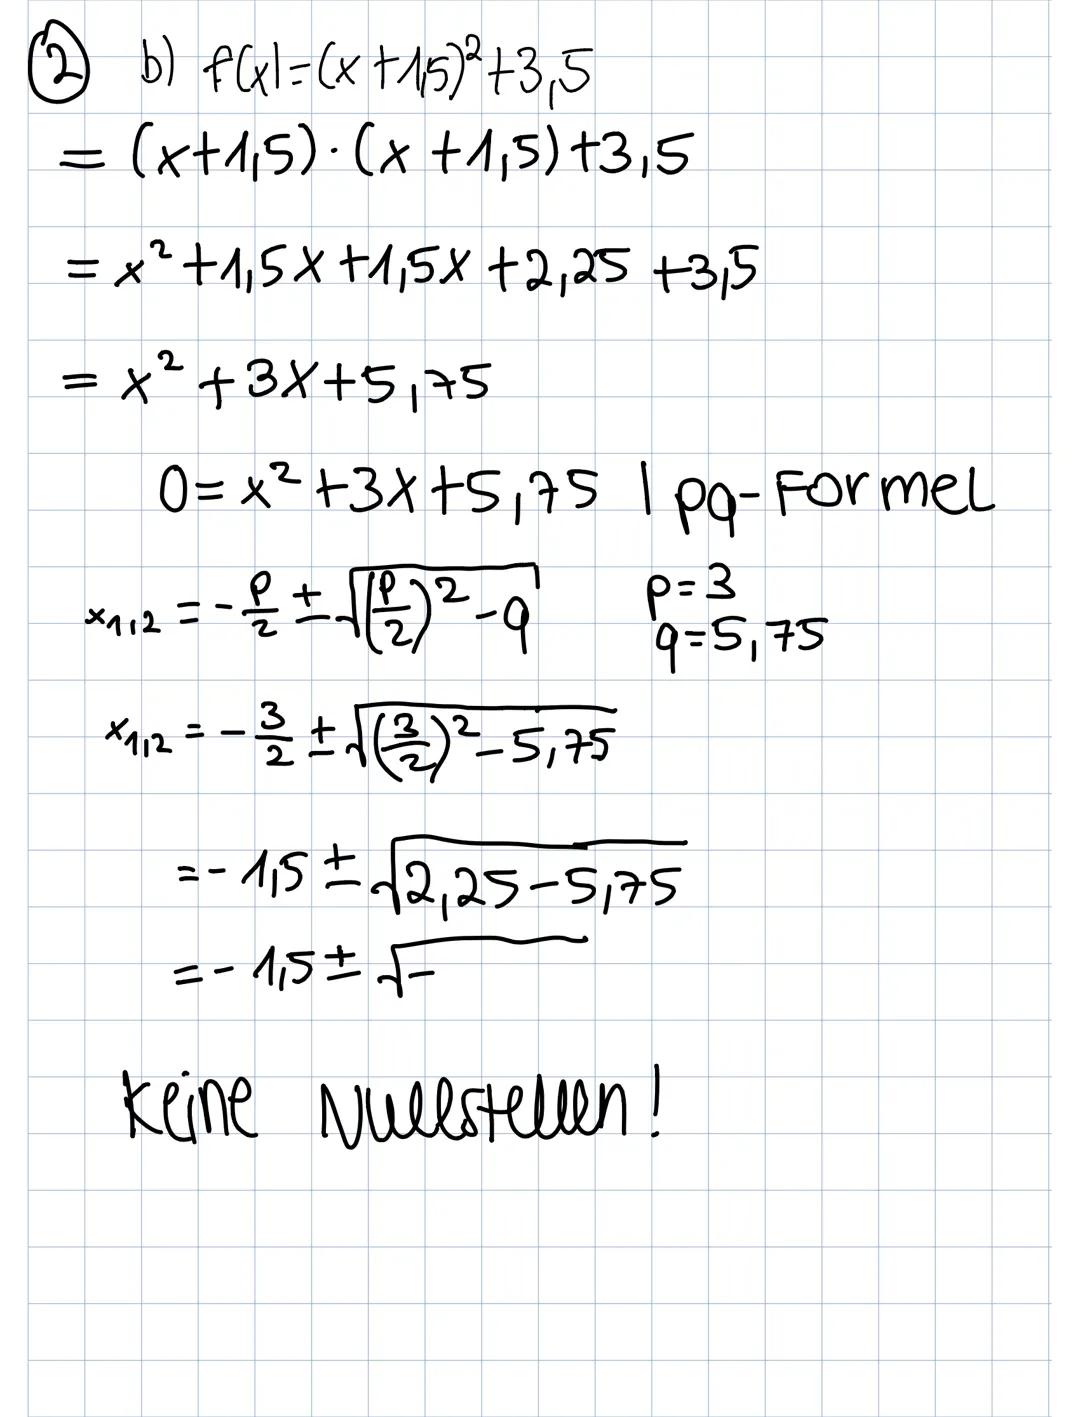 2 b) f(x)=(x+1,5)²+3,5
= (x+1,5)·(x+1,5)+3,5
= x²+1,5x+1,5x+2,25+3,5
= x²+3x+5,75
0=x²+3x+5,75 | pq-Formel
x₁,₂ = -p/2 ± √((p/2)²-q) p=3
q=5,75
x₁,₂ = -3/2 ± √((3/2)²-5,75)
=-1,5 ± √(2,25-5,75)
=-1,5 ± √-
Keine Nullstellen!